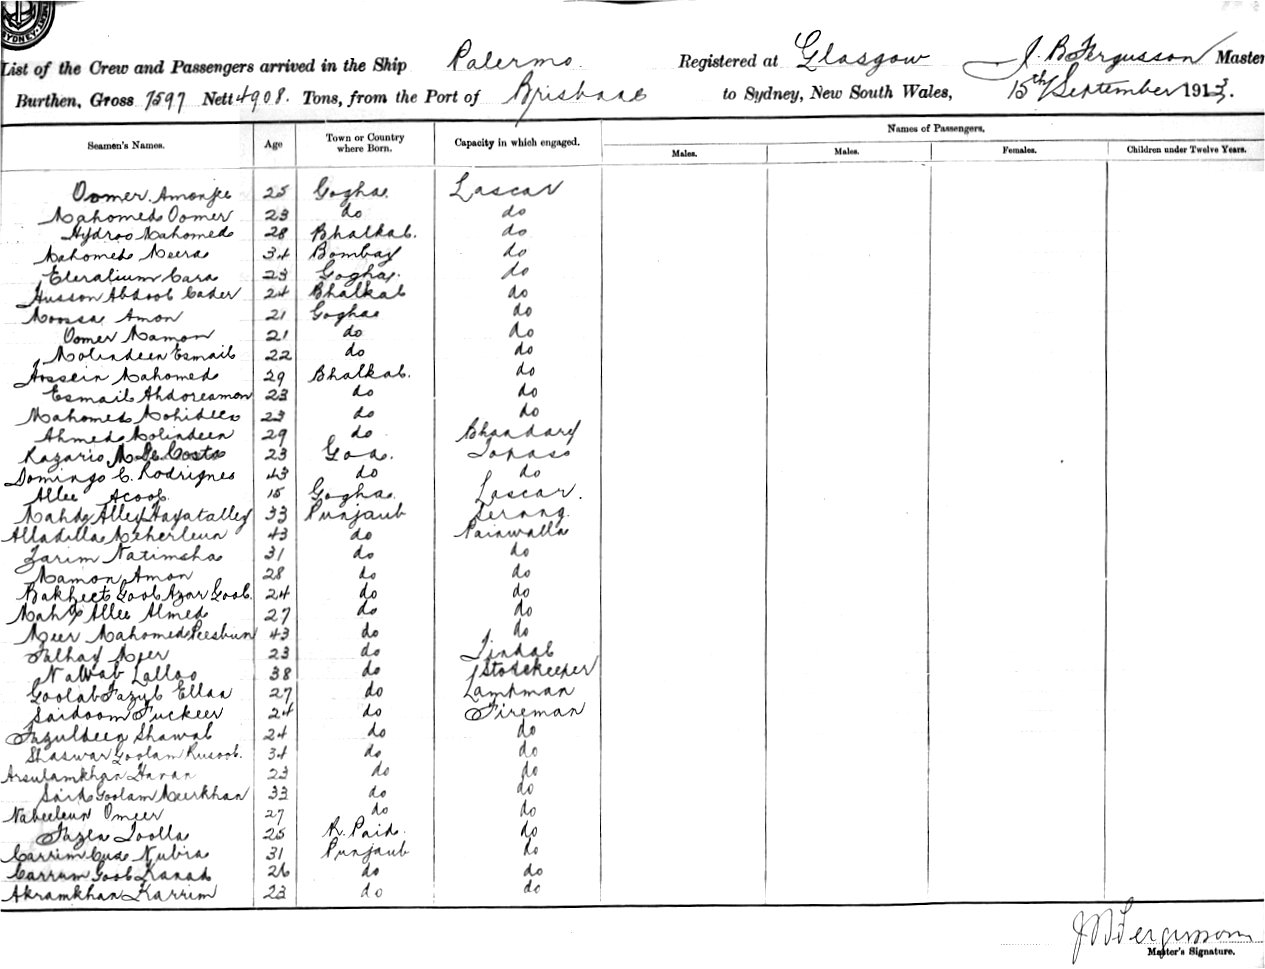 SYDNEY
List of the Crew and Passengers arrived in the Ship Palermo Registered at Glasgow J. B. Fergusson Master
Burthen, Gross 7597 Nett 4908. Tons, from the Port of Brisbane to Sydney, New South Wales, 15th September 1913.
Seamen's Names. Age Town or Country where Born. Capacity in which engaged. Names of Passengers.
Males. Males. Females. Children under Twelve Years.
Oomer Amonjee 25 Gogha. Lascar
Mahomed Oomer 23 do do
Hydroo Mahomed 28 Bhalkal. do
Mahomed Meera 34 Bombay do
Cara 23 Gogha. do
Husson Abdool Cader 24 Bhalkal do
Moosa Amon 21 Gogha do
Oomer Mamon 21 do do
Molindeen Esmail 22 do do
Hossein Mahomed 29 Bhalkal. do
Esmail Abdoreamon 23 do do
Mahomed Mohideen 23 do do
Ahmed Molindeen 29 do Bhandary
Razario M De Costa 23 Goa. Topass
Domingo C. Rodrignes 43 do do
Allee Acoob 15 Gogha. Lascar.
Mahdy Alley Hayatalley 33 Punjaub Serang
Alladilla Meherleun 43 do Painwalla
Zarim Natimsha 31 do do
Mamon Amon 28 do do
Bakheet Goolazar Goob 24 do do
Mahd Allee Almed 27 do do
Meer Mahomed Peesbun 43 do do
Talhay Meer 23 do Tindal
Nawab Lalloo 38 do Storekeeper
Goolab Fazyl Ellaa 27 do Lampman
Saidoom Fuckeer 24 do Fireman
Fazuldeen Shawal 24 do do
Shaswar Goolam Rusoob. 34 do do
Arsulamkhan Haran 23 do do
Said Goolam Meerkhan 33 do do
Nabeeleun Omeer 27 do do
Fazla Toolla 25 R. Paid. do
Carrim Nubia 31 Punjaub do
Carrum Goob Kanad 26 do do
Akramkhan Karrim 23 do do
J B Fergusson
Master's Signature.